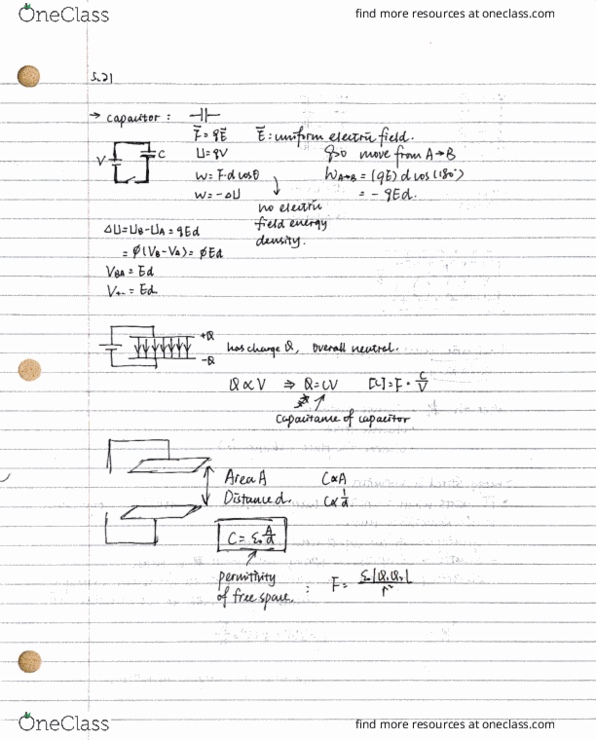 OneClass
find more resources at oneclass.com
5.21
→ capacitor :
F = qE E : uniform electric field.
V C U = qV q>0 move from A→B
W = F·d cosθ W A→B = (qE) d cos(180°)
W = -ΔU = -qEd.
no electric
field energy
density.
ΔU = UB - UA = qEd
= q(VB - VA) = qEd
VBA = Ed
V+- = Ed
+Q
-Q
has charge Q, overall neutral.
Q ∝ V ⇒ Q = CV [C] = F = C/V
Capacitance of capacitor
Area A C ∝ A
Distance d. C ∝ 1/d
C = ε₀ A/d
permitivity
of free space. : F = ε₀|Q₁Q₂|/r²
OneClass
find more resources at oneclass.com